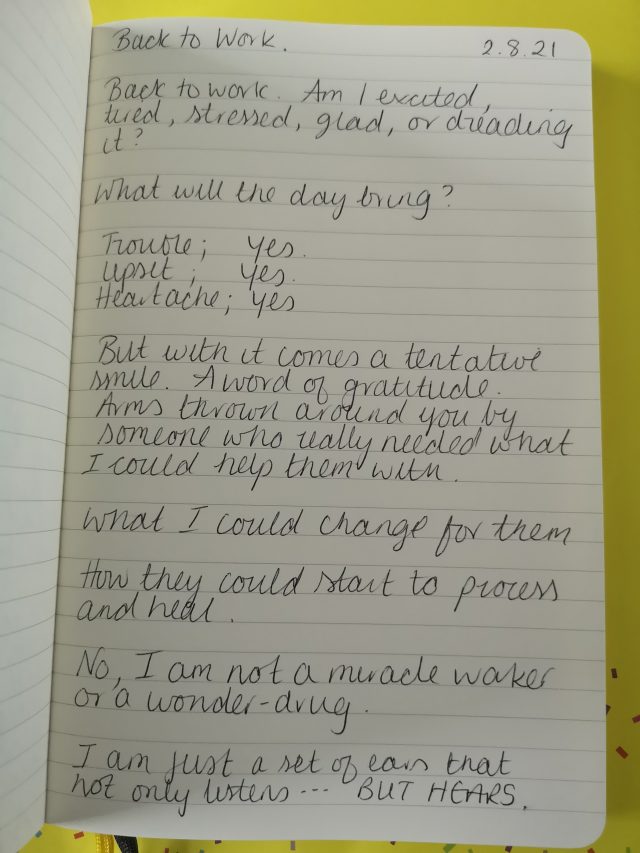 Back to Work. 2.8.21
Back to work. Am I excited,
tired, stressed, glad, or dreading
it?
What will the day bring?
Trouble; yes.
Upset; yes.
Heartache; yes
But with it comes a tentative
smile. A word of gratitude.
Arms thrown around you by
someone who really needed what
I could help them with.
What I could change for them
How they could start to process
and heal.
No, I am not a miracle waker
or a wonder-drug.
I am just a set of ears that
not only listens... BUT HEARS.